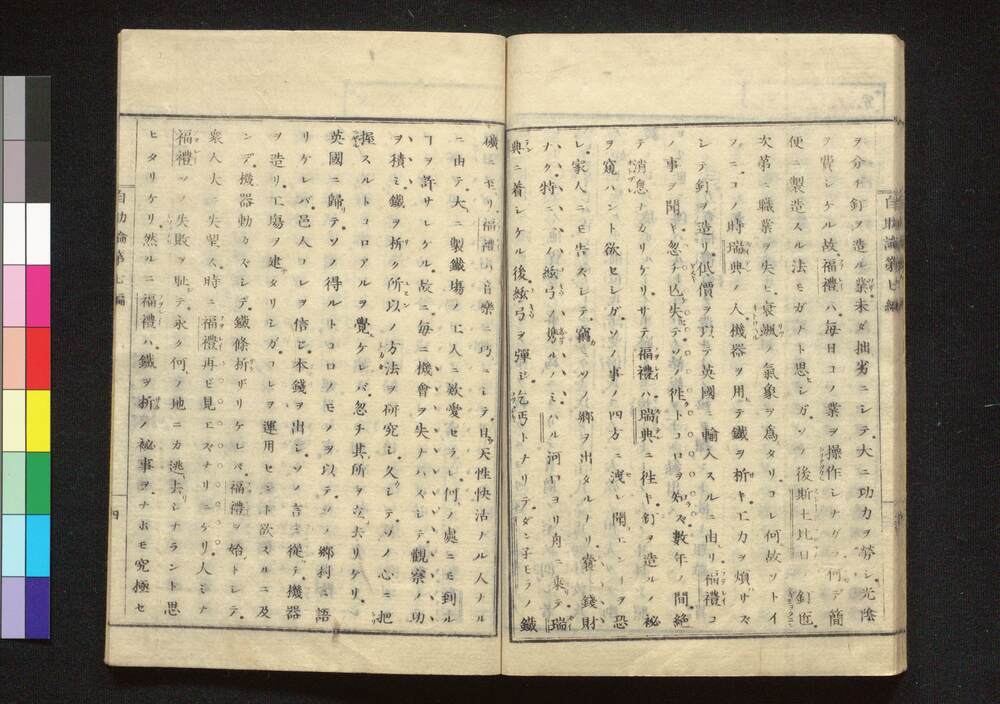 ヲ分チ釘ヲ造ル業未ダ拙劣ニシテ大ニ功力ヲ勞シ光陰
ヲ費シケル故福禮ハ毎日コノ業ヲ操作シナガラ何デ簡
便ニ製造スル法モガナト思シガソノ後斯土比日釘匠
次第ニ職業ヲ失ヒ衰颯ノ氣象ヲ爲タリコレ何故ゾトイ
フニコノ時瑞典ノ人機器ヲ用テ鐵ヲ析キ工力ヲ煩サズ
シテ釘ヲ造リ低價ヲ以テ英國ニ輸入スルニ由リ福禮コ
ノ事ヲ聞キ忽チ亡失テソノ徃トコロヲ知ズ數年ノ間絶
テ消息ナカリケリサテ福禮ハ瑞典ニ徃キ釘ヲ造ルノ秘
ヲ窺ハント欲セシガソノ事ノ四方ニ洩レ聞エンヿヲ恐
レ家人ニモ告ズシテ竊カニソノ郷ヲ出タルナリ囊ニ錢財
ナク特ニノ絃弓ノ携ルノミハル河口ヨリ舟ニ乘テ瑞
典ニ着シケル後絃弓ヲ彈ジ乞丐トナリテダン子モラノ鐵
礦ニ至リ福禮ハ音樂ニ巧ニシテ且天性快活ナル人ナル
ニ由テ大ニ製鐵塲ノ工人ニ欵愛セラレ何ノ處ニモ到ル
ヿヲ許サレケル故ニ毎ニ機會ヲ失ナハズシテ觀察ノ功
ヲ積ミ鐵ヲ析ク所以ノ方法ヲ研究シ久シテソノ心ニ把
握スルトコロアルヲ覺ケレバ忽チ其所ヲ立去リケリ
英國ニ歸テソノ得ルトコロノモノヲ以テソノ郷村ニ語
リケレバ邑人コレヲ信ジ本錢ヲ出シソノ言ニ從テ機器
ヲ造リ工塲ヲ建タリシガコレヲ運用セント欲スルニ及
ンデ機器動カズシテ鐵條折ザリケレバ福禮ヲ始トシテ
衆人大ニ失望ス時ニ福禮再ビ見エズナリニケリ人ミナ
福禮ソノ失敗ヲ恥テ永ク何ノ地ニカ逃去リシナラント思
ヒタリケリ然ルニ福禮ハ鐵ヲ折ノ祕事ヲナホモ究極セ
自助論第七編
四